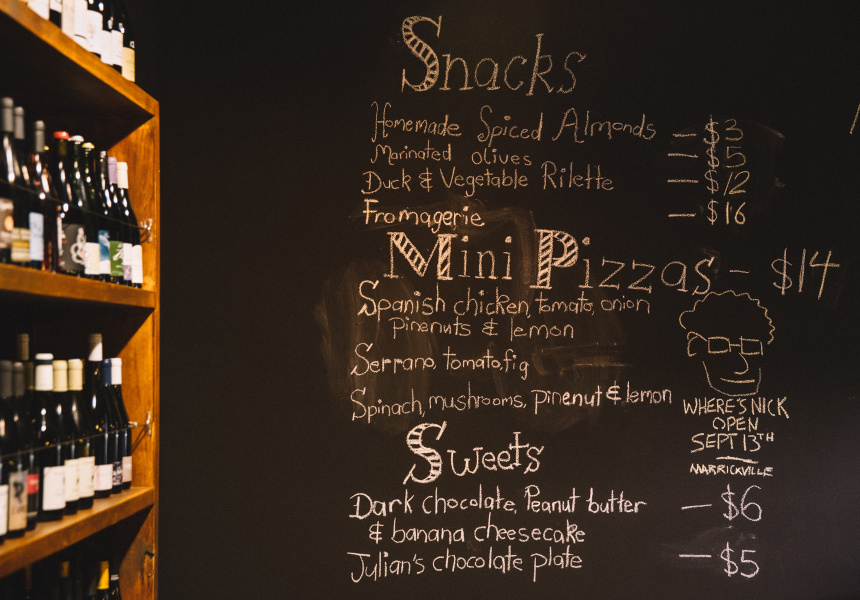 Snacks
Homemade Spiced Almonds — $3
Marinated olives — $5
Duck & Vegetable Rilette — $12
Fromagerie — $16
Mini Pizzas — $14
Spanish chicken, tomato, onion
pinenuts & lemon
Serrano, tomato, fig
Spinach, mushrooms, pinenut & lemon
WHERE'S NICK
OPEN
SEPT 13TH
MARRICKVILLE
Sweets
Dark chocolate, Peanut butter — $6
& banana cheesecake
Julian's chocolate plate — $5